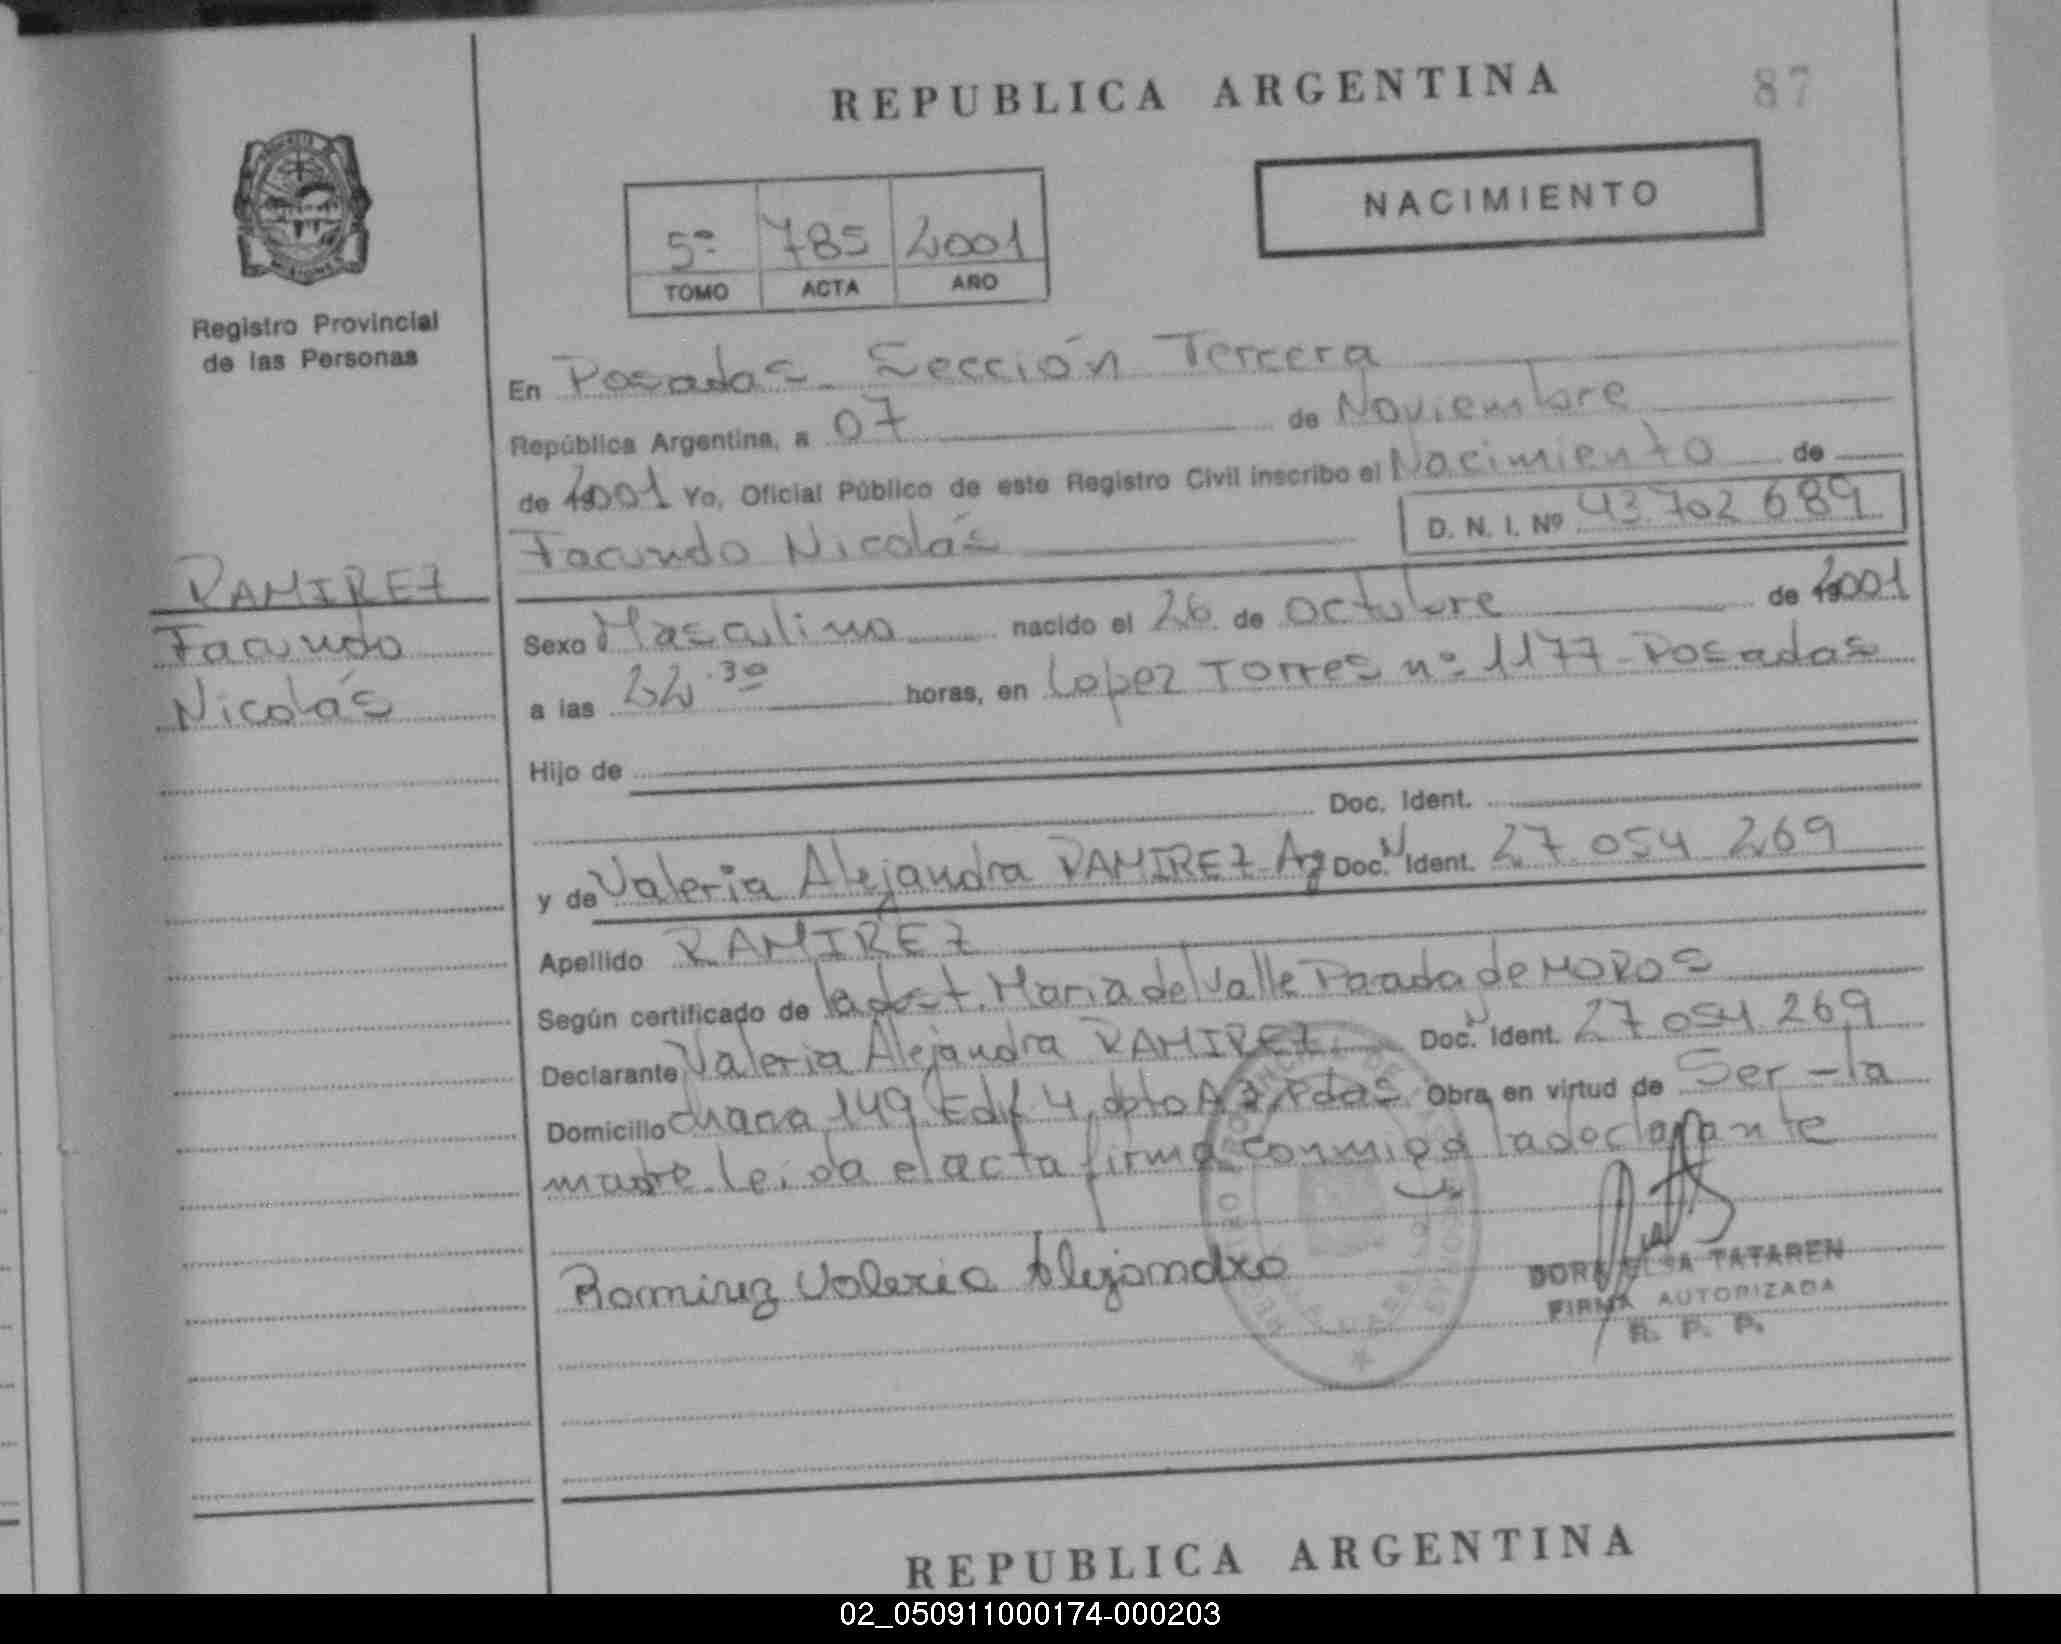 REPUBLICA ARGENTINA
87
NACIMIENTO
5º 785 2001
TOMO ACTA AÑO
Registro Provincial
de las Personas
En Posadas - Sección Tercera
República Argentina, a 07 de Noviembre
de 2001 Yo, Oficial Público de este Registro Civil inscribo el Nacimiento de
Facundo Nicolás D. N. I. Nº 43.702 689
RAMIREZ
Facundo
Nicolás
Sexo Masculino nacido el 26 de octubre de 2001
a las 22.30 horas, en Lopez Torres nº 1177 - Posadas
Hijo de
Doc. Ident.
y de Valeria Alejandra RAMIREZ Ag Doc. N Ident. 27 054 269
Apellido RAMIREZ
Según certificado de la obst. Maria del Valle de MOROS
Declarante Valeria Alejandra RAMIREZ Doc. N Ident. 27 054 269
Domicilio chacra 149 Edif 4, dpto A 3, Pdas Obra en virtud de Ser - la
madre leida el acta firma conmigo la declarante
Ramirez Valeria Alejandra
DORA ELSA TATAREN
FIRMA AUTORIZADA
R. P. P.
REPUBLICA ARGENTINA
02_050911000174-000203